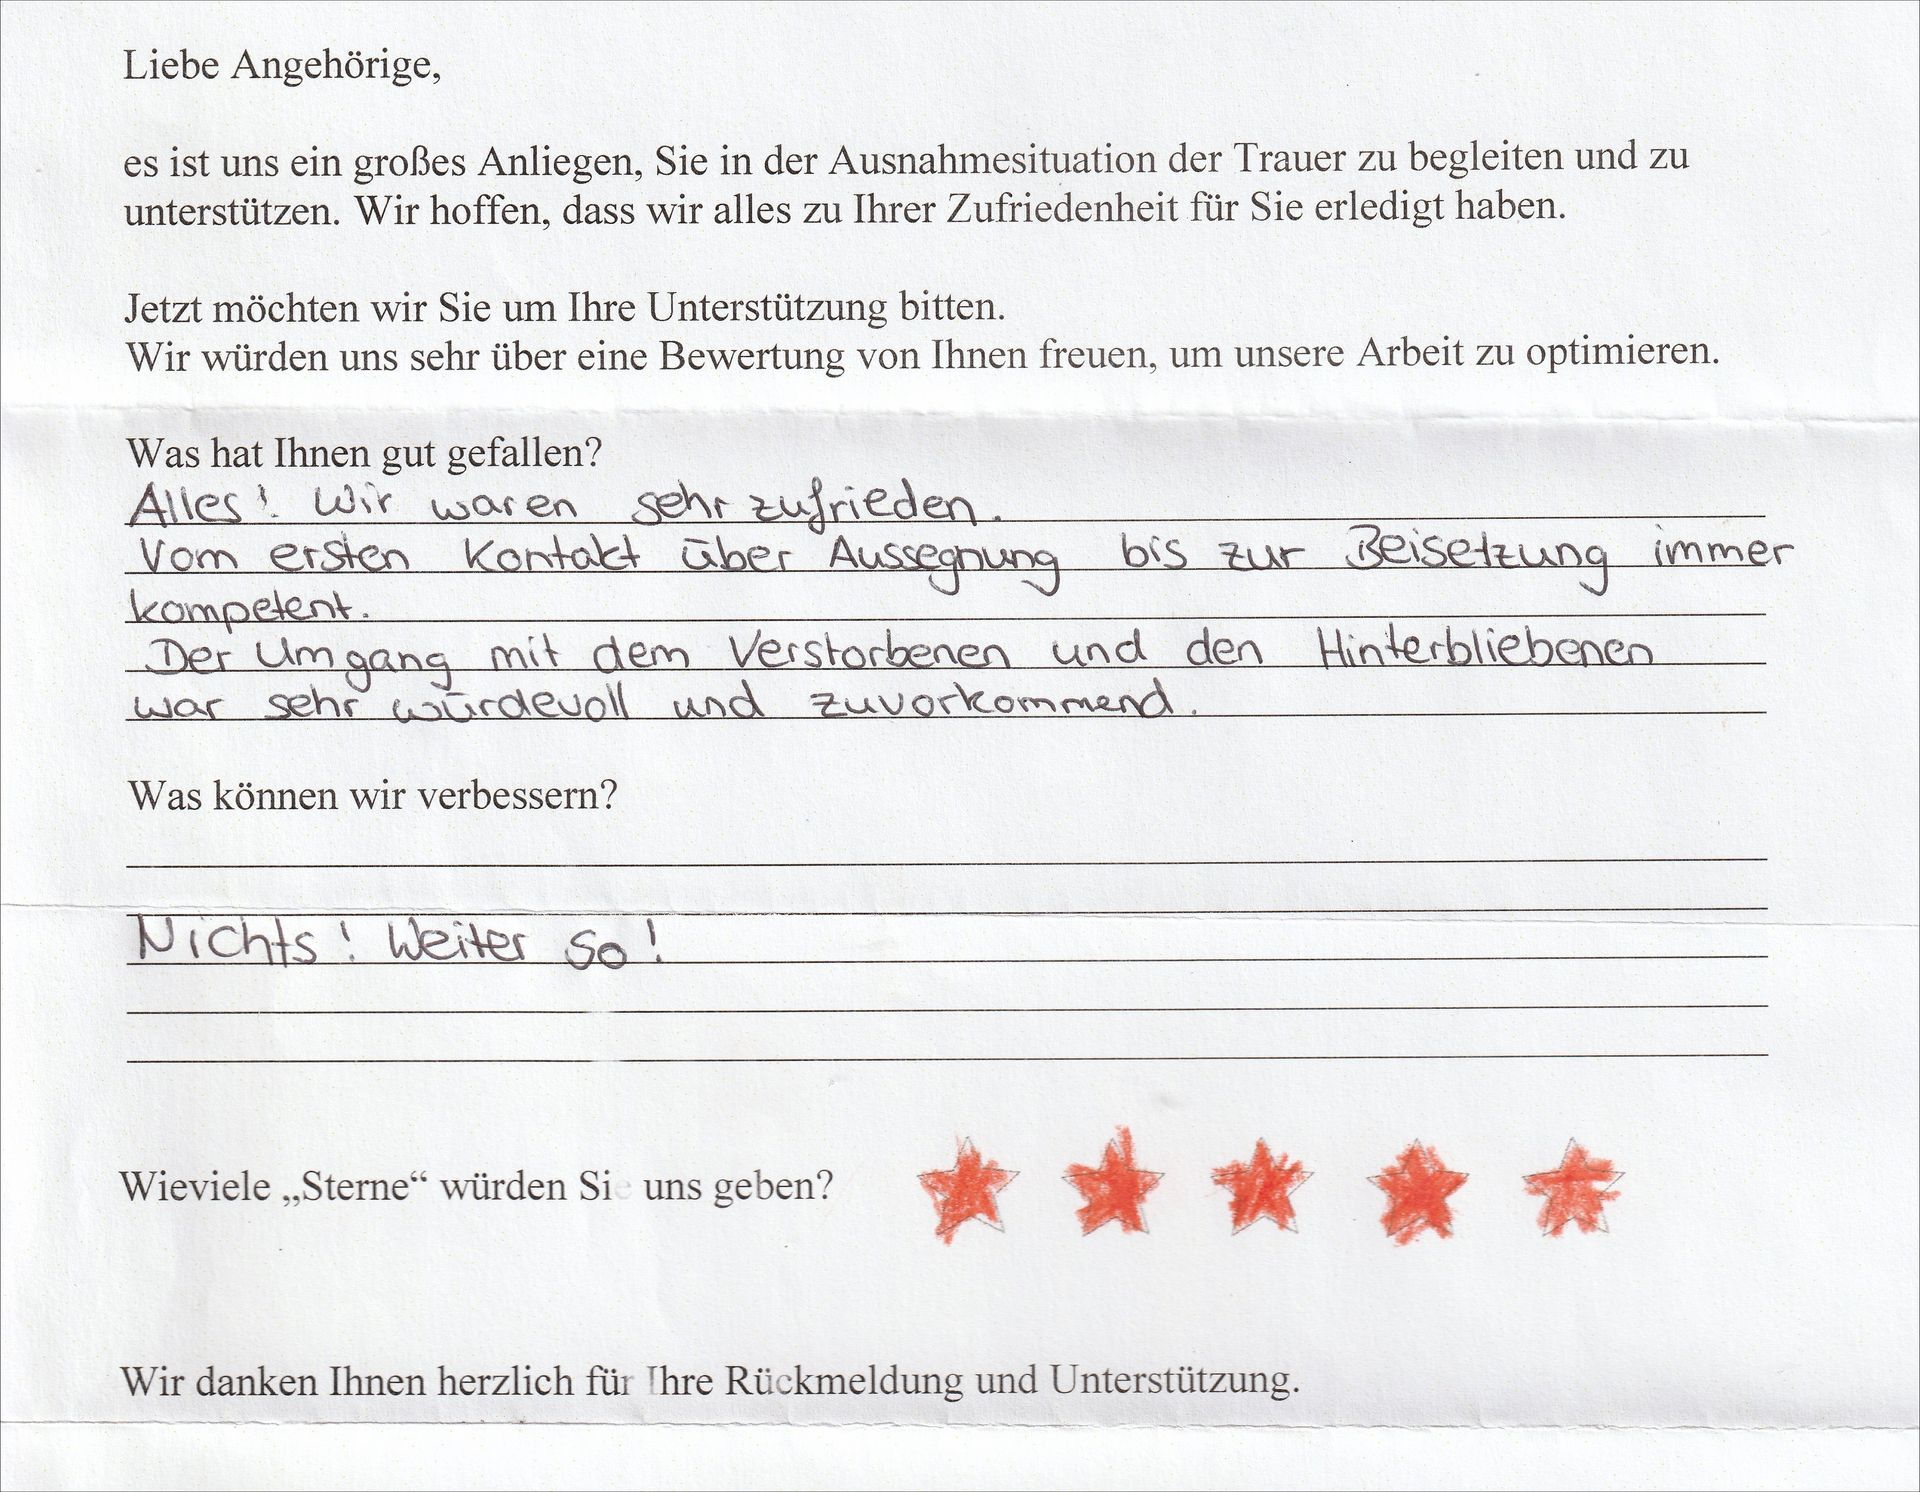 Liebe Angehörige,
es ist uns ein großes Anliegen, Sie in der Ausnahmesituation der Trauer zu begleiten und zu
unterstützen. Wir hoffen, dass wir alles zu Ihrer Zufriedenheit für Sie erledigt haben.
Jetzt möchten wir Sie um Ihre Unterstützung bitten.
Wir würden uns sehr über eine Bewertung von Ihnen freuen, um unsere Arbeit zu optimieren.
Was hat Ihnen gut gefallen?
Alles! Wir waren sehr zufrieden.
Vom ersten Kontakt über Aussegnung bis zur Beisetzung immer
kompetent.
Der Umgang mit dem Verstorbenen und den Hinterbliebenen
war sehr würdevoll und zuvorkommend.
Was können wir verbessern?
Nichts! Weiter so!
Wieviele „Sterne“ würden Sie uns geben?
Wir danken Ihnen herzlich für Ihre Rückmeldung und Unterstützung.